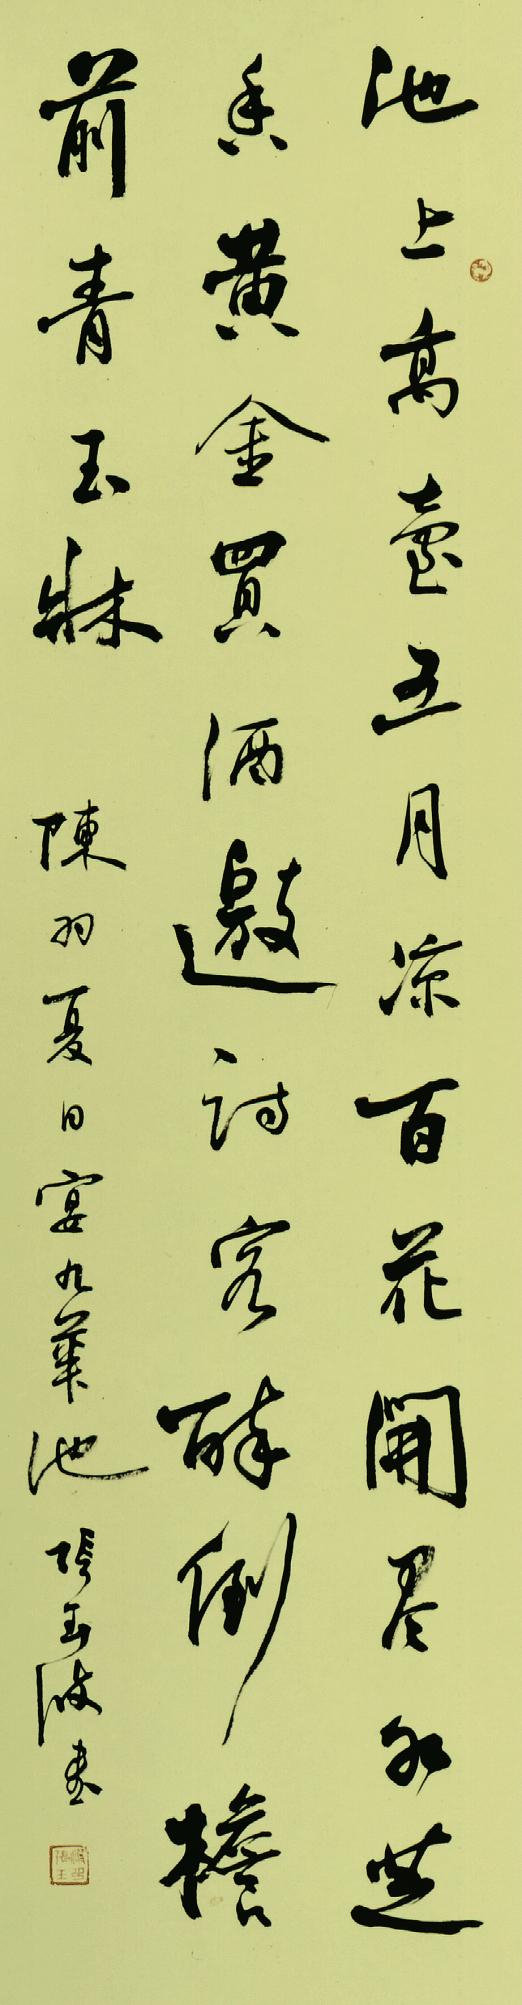 池上高臺五月凉百花開尽水芝
香黄金買酒邀詩客醉倒檐
前青玉牀
陳羽夏日宴九華池 張玉波書